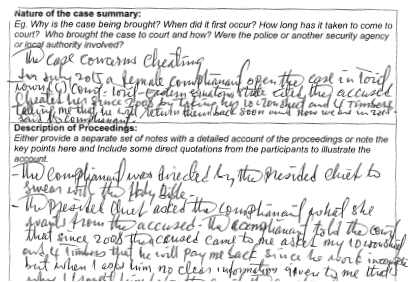 Nature of the case summary:
Eg. Why is the case being brought? When did it first occur? How long has it taken to come to
court? Who brought the case to court and how? Were the police or another security agency
or local authority involved?
The case concerns cheating
In July 2015 a female complainant open the case in torit
town court - torit - Eastern equatoria state cited the accused
cheated her since 2008 by taking her 10 iron sheet and 4 timbers
telling me that he will return them back soon and now we in 2015
said the complainant.
Description of Proceedings:
Either provide a separate set of notes with a detailed account of the proceedings or note the
key points here and Include some direct quotations from the participants to illustrate the
account.
- The complainant was directed by the presided chief to
swear with the Holy Bible.
- The presided chief asked the complainant what she
wants from the accused - the complainant told the court
that since 2008 the accused came to me asked my 10 iron sheet
and 4 timbers that he will pay me back since he work
but when I ask him no clear information given to me that